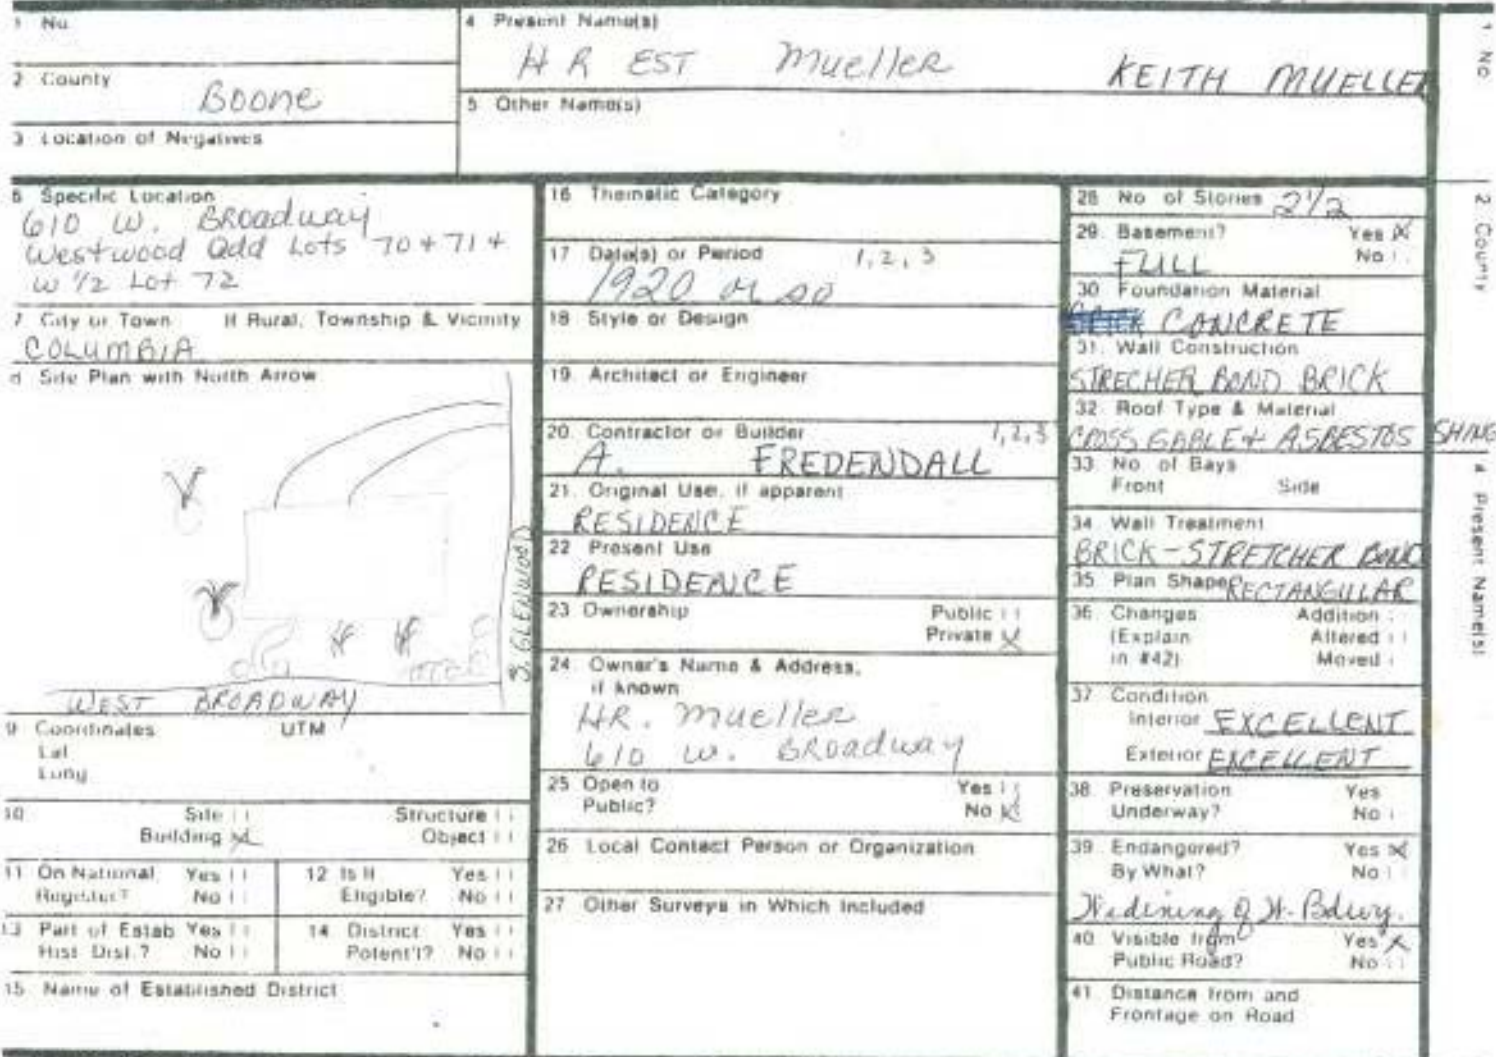 1 No.
4 Present Name(s)
H R EST Mueller KEITH MUELLER
2 County
Boone
5 Other Name(s)
3 Location of Negatives
6 Specific Location
610 W. Broadway
Westwood Add Lots 70 + 71 +
W 1/2 Lot 72
7 City or Town If Rural, Township & Vicinity
COLUMBIA
8 Site Plan with North Arrow
S. GLENWOOD
WEST BROADWAY
9 Coordinates UTM
Lat
Long
10 Site Structure
Building X Object
11 On National Register? Yes No
12 Is It Eligible? Yes No
13 Part of Estab Hist. Dist.? Yes No
14 District Potent'l? Yes No
15 Name of Established District
16 Thematic Category
17 Date(s) or Period 1, 2, 3
1920 or so
18 Style or Design
19 Architect or Engineer
20 Contractor or Builder 1, 2, 3
A. FREDENDALL
21. Original Use, if apparent
RESIDENCE
22 Present Use
RESIDENCE
23 Ownership Public
Private X
24 Owner's Name & Address,
if known
HR. Mueller
610 W. Broadway
25 Open to Yes
Public? No X
26 Local Contact Person or Organization
27 Other Surveys in Which Included
28 No of Stories 2 1/2
29. Basement? Yes X
FULL No
30 Foundation Material
CONCRETE
31. Wall Construction
STRECHER BOND BRICK
32 Roof Type & Material
CROSS GABLE + ASBESTOS SHING
33 No. of Bays
Front Side
34 Wall Treatment
BRICK - STRETCHER BOND
35 Plan Shape RECTANGULAR
36 Changes Addition
(Explain Altered
in #42) Moved
37 Condition
Interior EXCELLENT
Exterior EXCELLENT
38. Preservation Yes
Underway? No
39. Endangered? Yes X
By What? No
Widening of W. Bdwy.
40 Visible from Yes X
Public Road? No
41 Distance from and
Frontage on Road
1 No
2 County
4 Present Name(s)